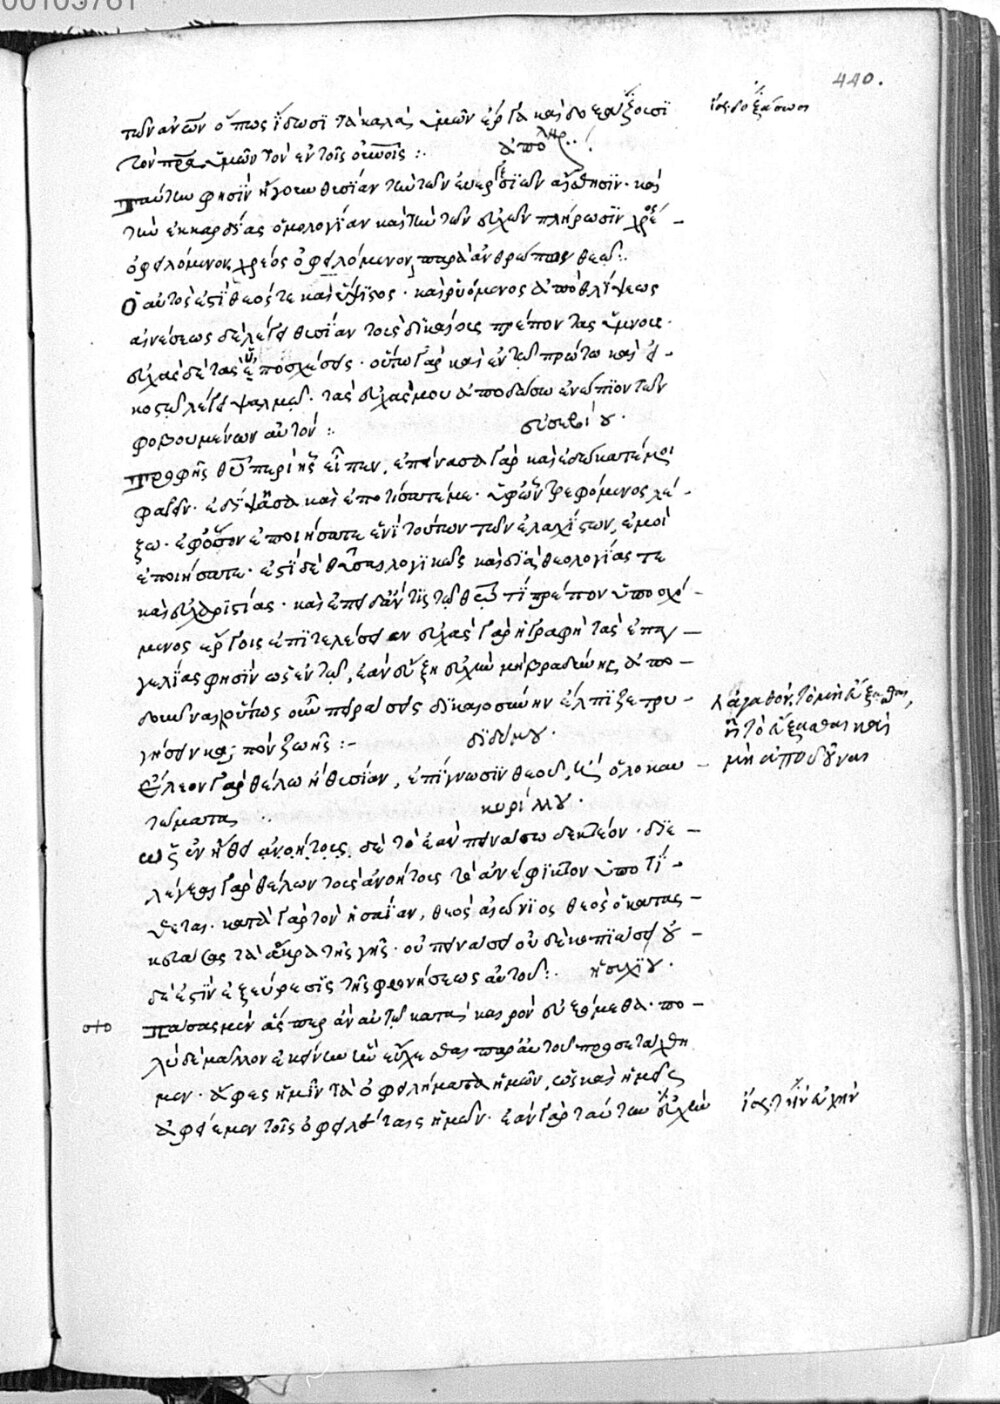 00105781
440.
των ανων ὅπως ἴδωσι τὰ καλὰ ὑμῶν ἔργα καὶ δοξάζοισι
ἴσ. δοξάσωσι
τὸν πρα ὑμῶν τὸν ἐν τοῖς οὐνοῖς :.
ἀπολιναρ
ταύτην φησὶν ἡγοῦ θυσίαν τὴν τῶν αἴσθησιν· καὶ
τὴν ἐκ καρδίας ὁμολογίαν καὶ τὴν τῶν εὐχῶν πλήρωσιν χρέος
ὀφειλόμενον, χρέος ὀφειλόμενον παρὰ ἀνθρώπων θεῷ :.
ὁ αὐτός ἐστι θεός τε καὶ ὕψιστος· καὶ ῥυόμενος ἀπὸ θλίψεως
αἰνέσεως δὲ λέγει θυσίαν τοὺς δικαίοις πρέποντας ὕμνους·
εὐχὰς δὲ τὰς ὑποσχέσεις· οὕτω γὰρ καὶ ἐν τῷ πρώτῳ καὶ εἰ-
κοστῷ λέγει ψαλμῷ· τὰς εὐχάς μου ἀποδώσω ἐνώπιον τῶν
φοβουμένων αὐτόν :.
εὐσεβίου·
τροφῆς θυ περὶ ἧς εἶπεν, ἐπείνασα γὰρ καὶ ἐδώκατέ μοι
φαγεῖν· ἐδίψασα καὶ ἐποτίσατέ με· ὑφ' ὧν τρεφόμενος λέ-
ξω· ἐφ' ὅσον ἐποιήσατε ἑνὶ τούτων τῶν ἐλαχίστων, ἐμοὶ
ἐποιήσατε· ἔστι δὲ θῦσαι λογικῶς καὶ διὰ θεολογίας τε
καὶ εὐχαριστίας· καὶ ἐπειδάν τις τῷ θεῷ τι πρέπον ὑποσχό-
μενος ἔργοις ἐπιτελέσειεν εὐχὰς γὰρ ἡ γραφὴ τὰς ἐπαγ-
γελίας φησὶν ὡς ἐν τῷ, ἐὰν εὔξῃ εὐχὴν μὴ βραδύνῃς ἀπο-
δοῦναι οὕτως οὖν σπείρας εἰς δικαιοσύνην ἐλπίζε τρυ-
γήσειν καρπὸν ζωῆς :-
διδύμου·
ἀγαθὸν, τὸ μὴ εὔξασθαι,
ἢ τὸ εὔξασθαι καὶ
μὴ ἀποδοῦναι
ἔλεον γὰρ θέλω ἢ θυσίαν, ἐπίγνωσιν θεοῦ, ἢ ὁλοκαυ-
τώματα
κυρίλλου·
ὡς ἐν ἤθει ἀνοήτοις δὲ τὸ ἐὰν πεινάσω δεκτέον· διε-
λέγξαι γὰρ θέλων τοὺς ἀνοήτους τὸ ἀνέφικτον ὑποτί-
θεται· κατὰ γὰρ τὸν ἡσαΐαν, θεὸς αἰώνιος θεὸς ὁ κατασ-
κευάσας τὰ ἄκρα τῆς γῆς· οὐ πεινάσει οὐδὲ κοπιάσει οὐ
δέ ἐστιν ἐξεύρεσις τῆς φρονήσεως αὐτοῦ :.
ἡσυχίου·
πάσας μὲν ἅσπερ ἂν αὐτῷ κατὰ καιρὸν εὐξώμεθα· πο-
λὺ δὲ μᾶλλον ἐκείνην ἣν εὔχεσθαι παρ' αὐτοῦ προσετάχθη
μεν· ἄφες ἡμῖν τὰ ὀφειλήματα ἡμῶν, ὡς καὶ ἡμεῖς
ἀφίεμεν τοῖς ὀφειλέταις ἡμῶν· ἐὰν γὰρ ταύτην εὐχὴν
ἴσ. τὴν εὐχὴν